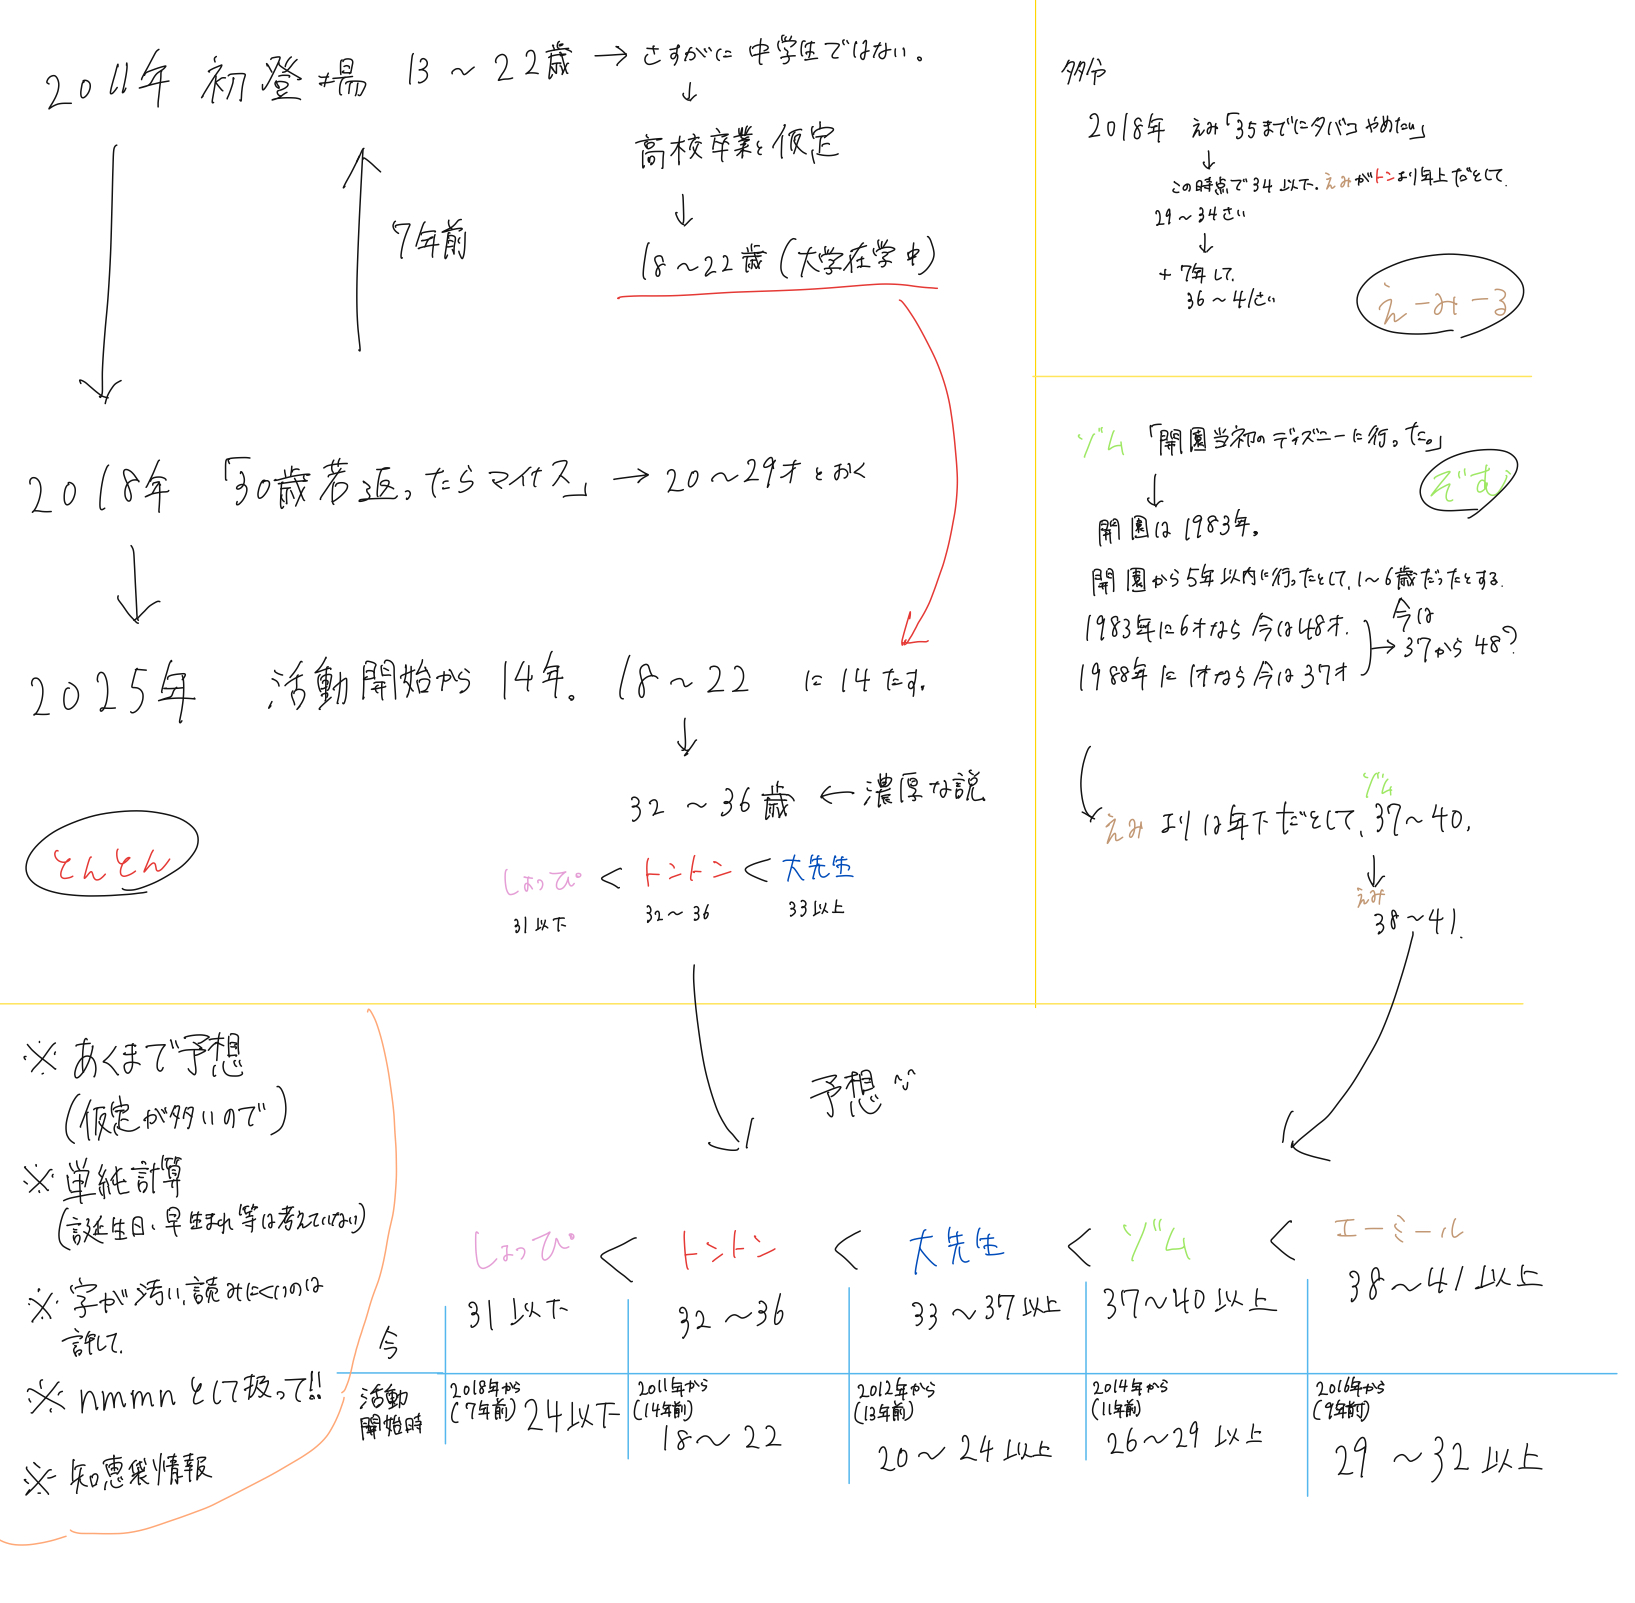 2011年 初登場 13～22歳 → さすがに中学生ではない。
↓
高校卒業と仮定
↓
18～22歳(大学在学中)
7年前
2018年 「30歳若返ったらマイナス」 → 20～29才とおく
↓
2025年 活動開始から14年。 18～22 に14たす。
↓
32～36歳 ← 濃厚な説
とんとん
しょっぴ < トントン < 大先生
31以下 32～36 33以上
多分
2018年 えみ「35までにタバコやめたい」
↓
この時点で34以下。えみがトンより年上だとして、
29～34さい
↓
+7年して、
36～41さい
えーみーる
ゾム「開園当初のディズニーに行った。」
ぞむ
↓
開園は1983年。
開園から5年以内に行ったとして、1～6歳だったとする。
1983年に6才なら今は48才。
1988年に1才なら今は37才
今は
→ 37から48?
ゾム
えみよりは年下だとして、37～40、
↓
えみ
38～41.
※あくまで予想
(仮定が多いので)
※単純計算
(誕生日、早生まれ等は考えていない)
※字が汚い、読みにくいのは
許して、
※nmmnとして扱って!!
※知恵袋情報
予想
しょっぴ < トントン < 大先生 < ゾム < エーミール
今 31以下 32～36 33～37以上 37～40以上 38～41以上
活動
開始時
2018年から
(7年前) 24以下
2011年から
(14年前)
18～22
2012年から
(13年前)
20～24以上
2014年から
(11年前)
26～29以上
2016年から
(9年前)
29～32以上